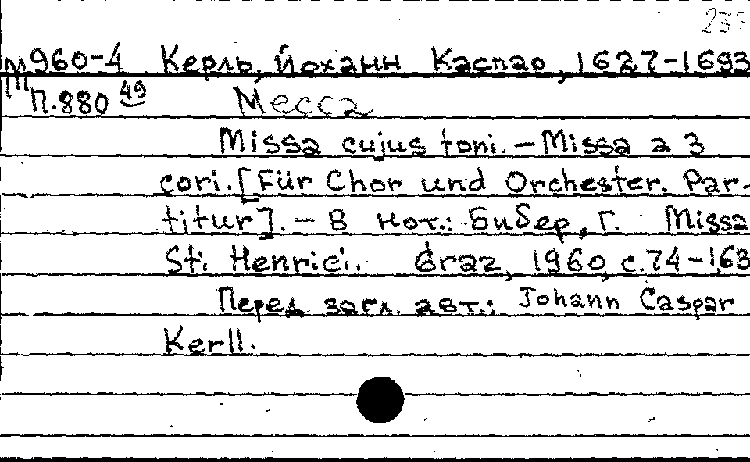 М960-4 Керль, Йоханн Каспар, 1627-1693
П.880 49 Месса
Missa cujus toni. - Missa a 3
cori. [Für Chor und Orchester. Par-
titur]. - В нот.: Бибер, Г. Missa
St. Henrici. Graz, 1960, с.74-163
Перед загл. авт.: Johann Caspar
Kerll.